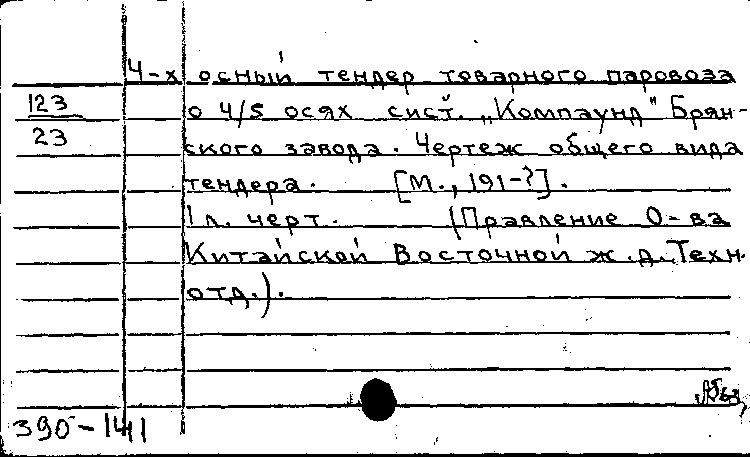 4-х осный тендер товарного паровоза
123
о 4/5 осях сист. „Компаунд" Брян-
23
ского завода. Чертеж общего вида
тендера. [М., 191-?].
1 л. черт. (Правление О-ва
Китайской Восточной ж.д. Техн.
отд.).
390-141